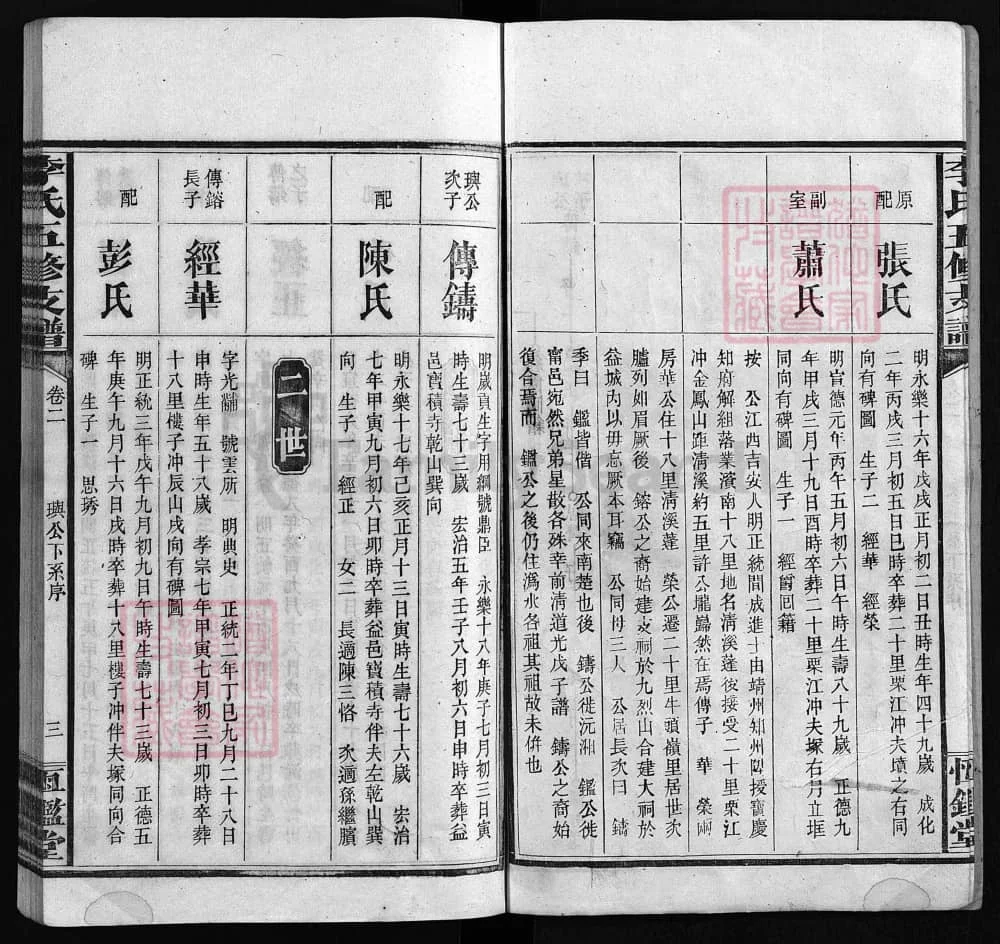 李氏五修支譜
恆鑑堂
原配
張氏
明永樂十六年戊戌正月初二日丑時生年四十九歲 成化
二年丙戌三月初五日巳時卒葬二十里栗江冲夫墳之右同
向有碑圖 生子二 經華 經榮
副室
蕭氏
明宣德元年丙午五月初六日午時生壽八十九歲 正德九
年甲戌三月十九日酉時卒葬二十里栗江冲夫塚右月立垭
同向有碑圖 生子一 經爵回籍
按 公江西吉安人明正統間成進士由靖州知州陞授寶慶
知府解組落業濱南十八里地名淸溪蓬後接受二十里栗江
冲金鳳山距淸溪約五里許公壠巋然在焉傳子 華 榮兩
房華公住十八里淸溪蓬 榮公遷二十里牛頭嶺里居世次
臚列如眉厥後 鎔公之裔始建支祠於九烈山合建大祠於
益城內以毋忘厥本耳竊 公同母三人 公居長次曰 鑄
季曰 鑑皆偕 公同來南楚也後 鑄公徙沅湘 鑑公徙
甯邑宛然兄弟星散各殊幸前淸道光戊子譜 鑄公之裔始
復合璹而 鑑公之後仍住潙水各祖其祖故未併也
璵公次子
傳鑄
明歲貢生字用綱號鼎臣 永樂十八年庚子七月初三日寅
時生壽七十三歲 宏治五年壬子八月初六日申時卒葬益
邑寶積寺乾山巽向
配
陳氏
明永樂十七年己亥正月十三日寅時生壽七十六歲 宏治
七年甲寅九月初六日卯時卒葬益邑寶積寺伴夫左乾山巽
向 生子一 經正 女二 長適陳三恪 次適孫繼臏
二世
傳鎔長子
經華
字光黼 號雲所 明典史 正統二年丁巳九月二十八日
申時生年五十八歲 孝宗七年甲寅七月初三日卯時卒葬
十八里樓子冲辰山戌向有碑圖
配
彭氏
明正統三年戊午九月初九日午時生壽七十三歲 正德五
年庚午九月十六日戌時卒葬十八里樓子冲伴夫塚同向合
碑 生子一 思琇
李氏五修支譜
卷二
璵公下系序
三
恆鑑堂